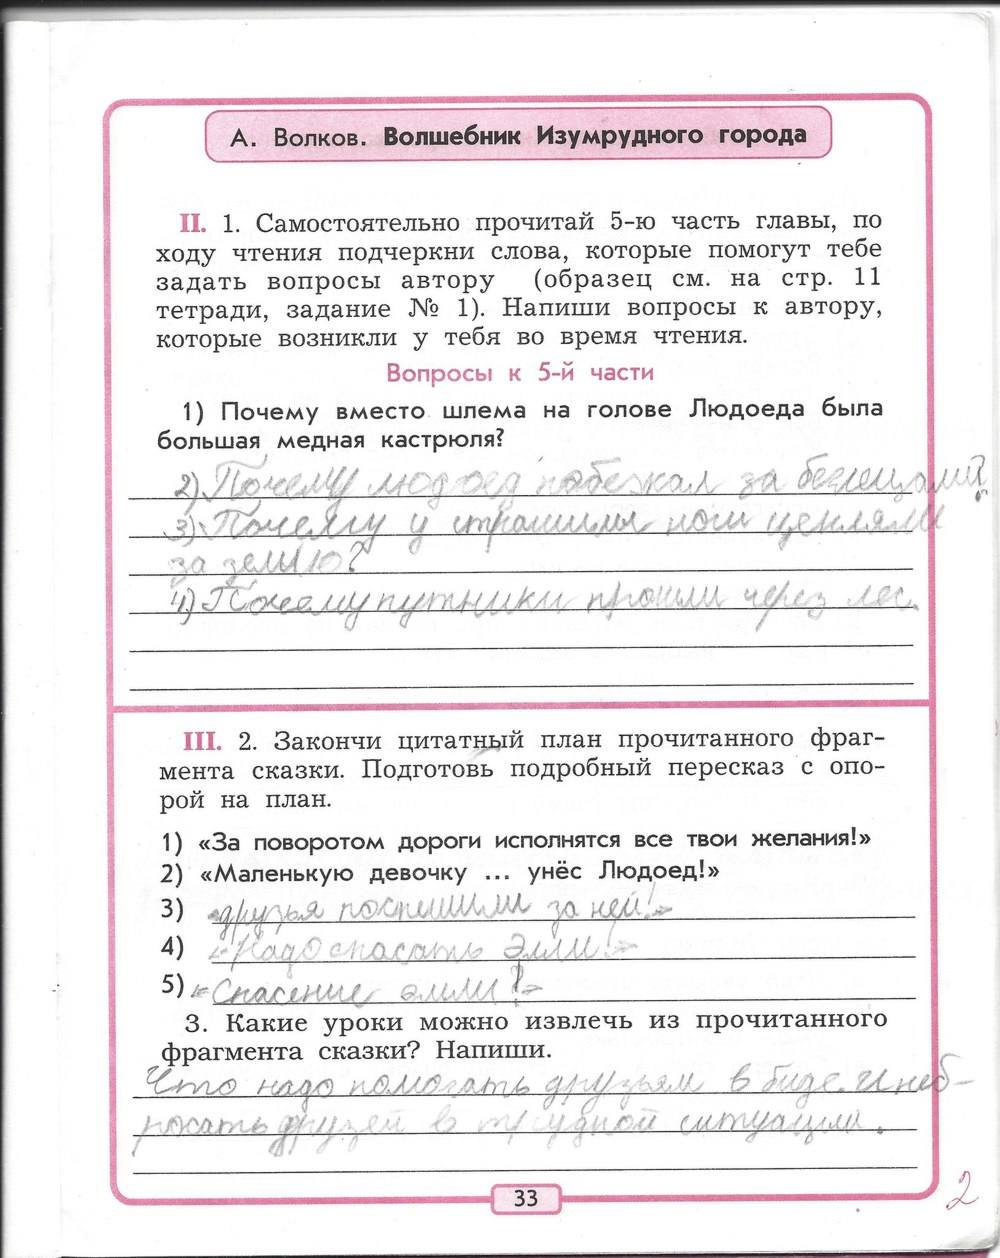 А. Волков. Волшебник Изумрудного города
II. 1. Самостоятельно прочитай 5-ю часть главы, по
ходу чтения подчеркни слова, которые помогут тебе
задать вопросы автору (образец см. на стр. 11
тетради, задание № 1). Напиши вопросы к автору,
которые возникли у тебя во время чтения.
Вопросы к 5-й части
1) Почему вместо шлема на голове Людоеда была
большая медная кастрюля?
2) Почему людоед побежал за беглецами?
3) Почему у страшилы ноги цеплялись
за землю?
4) Почему путники прошли через лес.
III. 2. Закончи цитатный план прочитанного фраг-
мента сказки. Подготовь подробный пересказ с опо-
рой на план.
1) «За поворотом дороги исполнятся все твои желания!»
2) «Маленькую девочку ... унёс Людоед!»
3) «друзья поспешили за ней!»
4) «Надо спасать Элли!»
5) «Спасение элли!»
3. Какие уроки можно извлечь из прочитанного
фрагмента сказки? Напиши.
Что надо помогать друзьям в биде. И неб-
росать друзей в трудной ситуации.
33
2